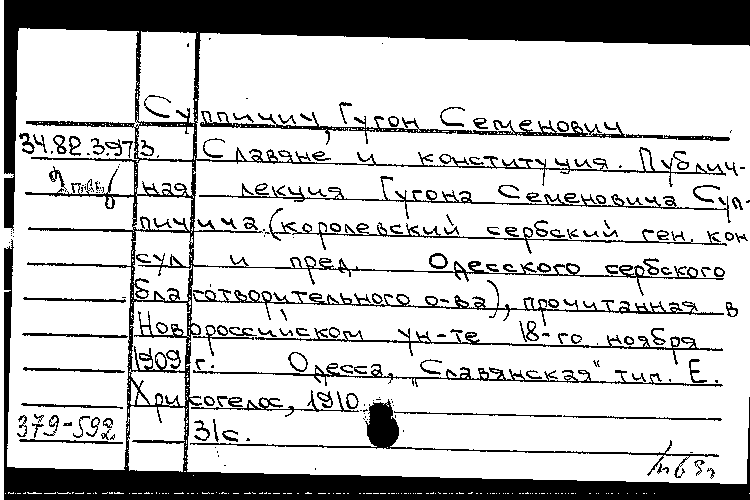 Суппичич, Гугон Семенович
34.82.3.97.3. Славяне и конституция. Публич-
ная лекция Гугона Семеновича Суп-
пичича (королевский сербский ген. кон
сул и пред. Одесского сербского
благотворительного о-ва), прочитанная в
Новороссийском ун-те 18-го ноября
1909 г. Одесса, "Славянская" тип. Е.
Хрисогелос, 1910
379-592 31с.